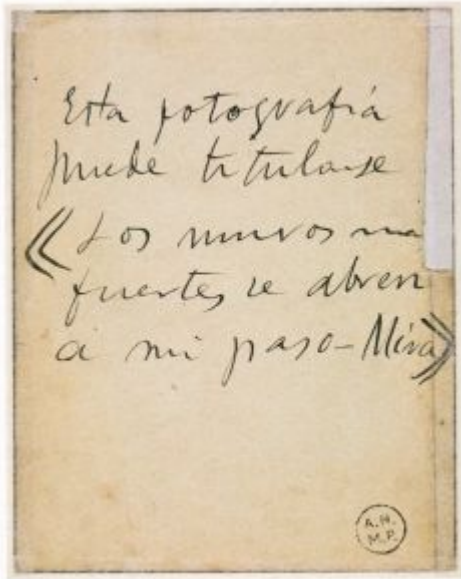 Esta fotografia
puede titularse
«Los muros ma
fuertes se abren
a mi paso - Mira»
A.H.
M.P.